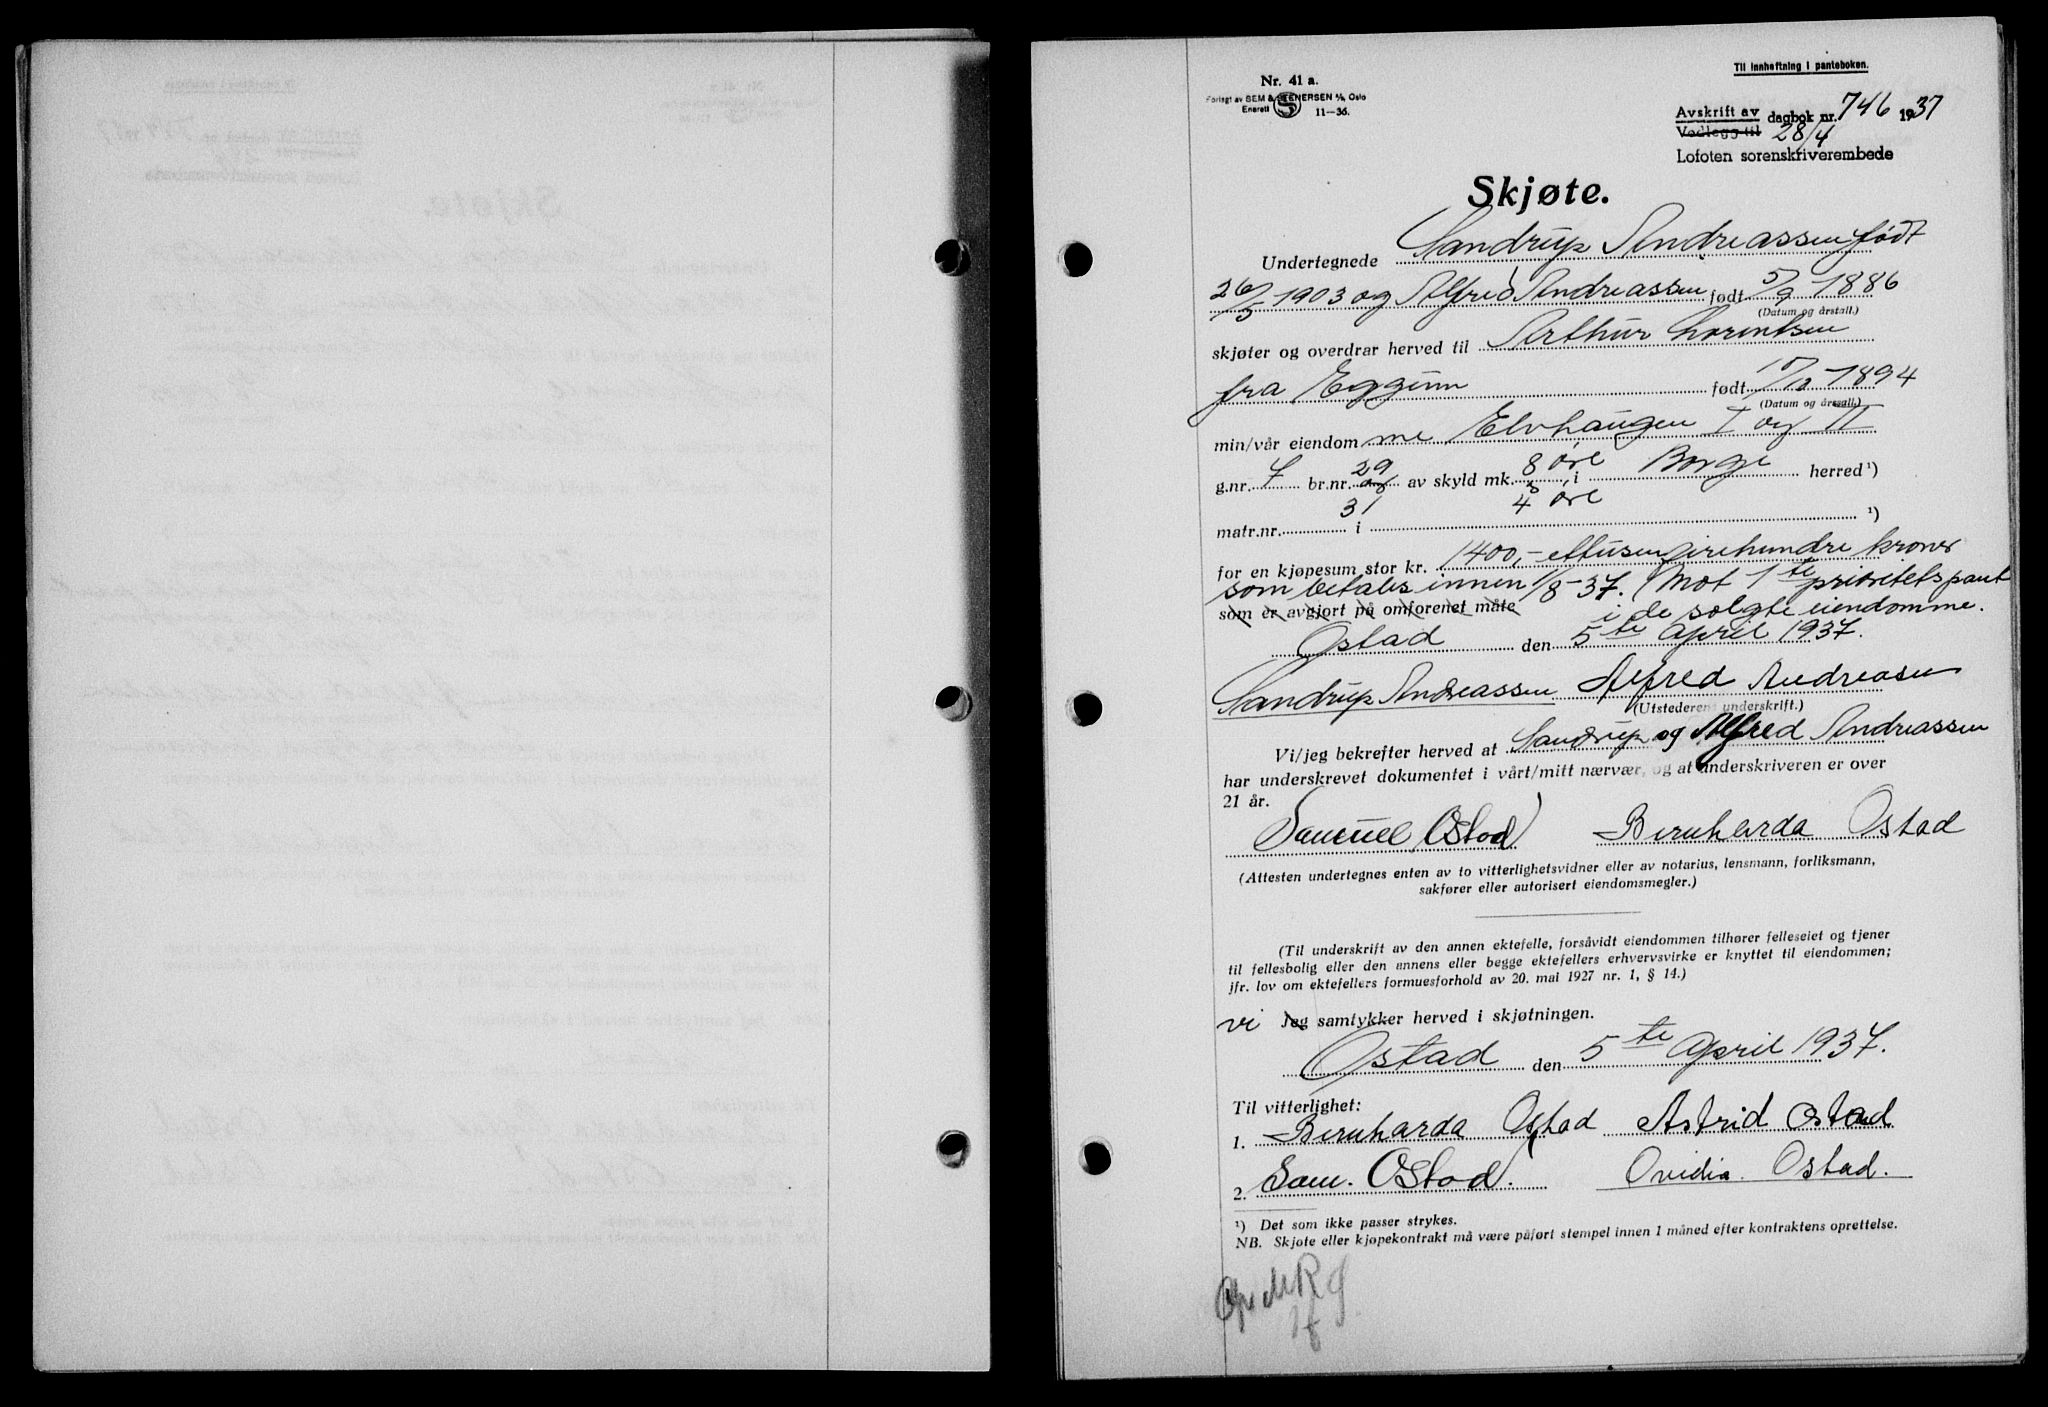 Til innheftning i panteboken.
Nr. 41 a.
Forlagt av SEM & STENERSEN A/S, Oslo
Enerett S 11—36.
Avskrift av dagbok nr. 746 1937
Vedlegg til 28/4
Lofoten sorenskriverembede
Skjøte.
Undertegnede Sandrup Andreassen født
26/5 1903 og Alfred Andreassen født 5/9 1886
(Datum og årstall.)
skjøter og overdrar herved til Arthur Lorentsen
fra Eggum født 1894
(Datum og årstall.)
min/vår eiendom me Elvhaugen I og II
g.nr. 7 br.nr. 29 og av skyld mk. 8 øre i Borge herred ¹)
31 4 øre
matr.nr. i ¹)
for en kjøpesum stor kr. 1400,- ettusenfirehundre kroner
som betales innen 1/8-37. Mot 1te prioritets pant
som er avgjort på omforenet måte i de solgte eiendomme.
Ostad den 5te April 1937.
Sandrup Andreassen Alfred Andreasen
(Utstederens underskrift.)
Vi/jeg bekrefter herved at Sandrup og Alfred Andreassen
har underskrevet dokumentet i vårt/mitt nærvær, og at underskriveren er over
21 år.
Samuel Ostad Bernharda Ostad
(Attesten undertegnes enten av to vitterlighetsvidner eller av notarius, lensmann, forliksmann,
sakfører eller autorisert eiendomsmegler.)
(Til underskrift av den annen ektefelle, forsåvidt eiendommen tilhører felleseiet og tjener
til fellesbolig eller den annens eller begge ektefellers erhvervsvirke er knyttet til eiendommen;
jfr. lov om ektefellers formuesforhold av 20. mai 1927 nr. 1, § 14.)
vi Jeg samtykker herved i skjøtningen.
Ostad den 5te April 1937.
Til vitterlighet:
1. Bernharda Ostad Astrid Ostad
2. Sam. Ostad. Ovidia. Ostad.
¹) Det som ikke passer strykes.
NB. Skjøte eller kjøpekontrakt må være påført stempel innen 1 måned efter kontraktens oprettelse.